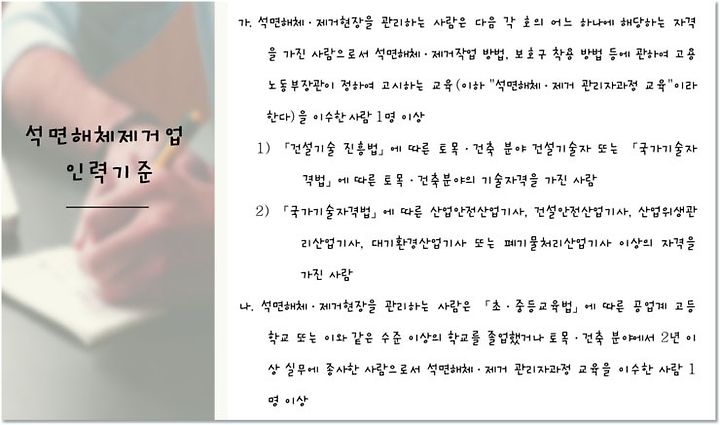 석면해체제거업
인력기준
가. 석면해체·제거현장을 관리하는 사람은 다음 각 호의 어느 하나에 해당하는 자격
을 가진 사람으로서 석면해체·제거작업 방법, 보호구 착용 방법 등에 관하여 고용
노동부장관이 정하여 고시하는 교육(이하 "석면해체·제거 관리자과정 교육"이라
한다)을 이수한사람 1명 이상
1) 「건설기술 진흥법」에 따른 토목·건축 분야 건설기술자 또는 「국가기술자
격법」에 따른 토목·건축분야의 기술자격을 가진 사람
2) 「국가기술자격법」에 따른 산업안전산업기사, 건설안전산업기사, 산업위생관
리산업기사, 대기환경산업기사 또는 폐기물처리산업기사 이상의 자격을
가진 사람
나. 석면해체·제거현장을 관리하는 사람은 「초·중등교육법」에 따른 공업계 고등
학교 또는 이와 같은 수준 이상의 학교를 졸업했거나 토목·건축 분야에서 2년 이
상 실무에 종사한 사람으로서 석면해체·제거 관리자과정 교육을 이수한 사람 1
명 이상